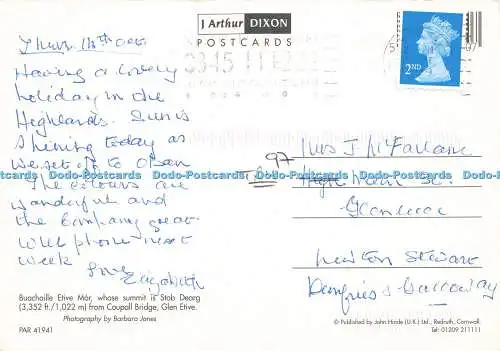 J Arthur DIXON
POSTCARDS
2ND
Thurs. 16th Oct
Having a lovely
holiday in the
Highlands. Sun is
shining today as
we set off to Oban
The colours are
wonderful and
the company great
Will phone next
week
Love
Elizabeth
97
Mrs J McFarlane
High St.
Glenluce
Newton Stewart
Dumfries & Galloway
Dodo-Postcards Dodo-Postcards Dodo-Postcards Dodo-Postcards Dodo-Postcards
Buachaille Etive Mór, whose summit is Stob Dearg
(3,352 ft./1,022 m) from Coupall Bridge, Glen Etive.
Photography by Barbara Jones
PAR 41941
© Published by John Hinde (U.K.) Ltd., Redruth, Cornwall.
Tel: 01209 211111